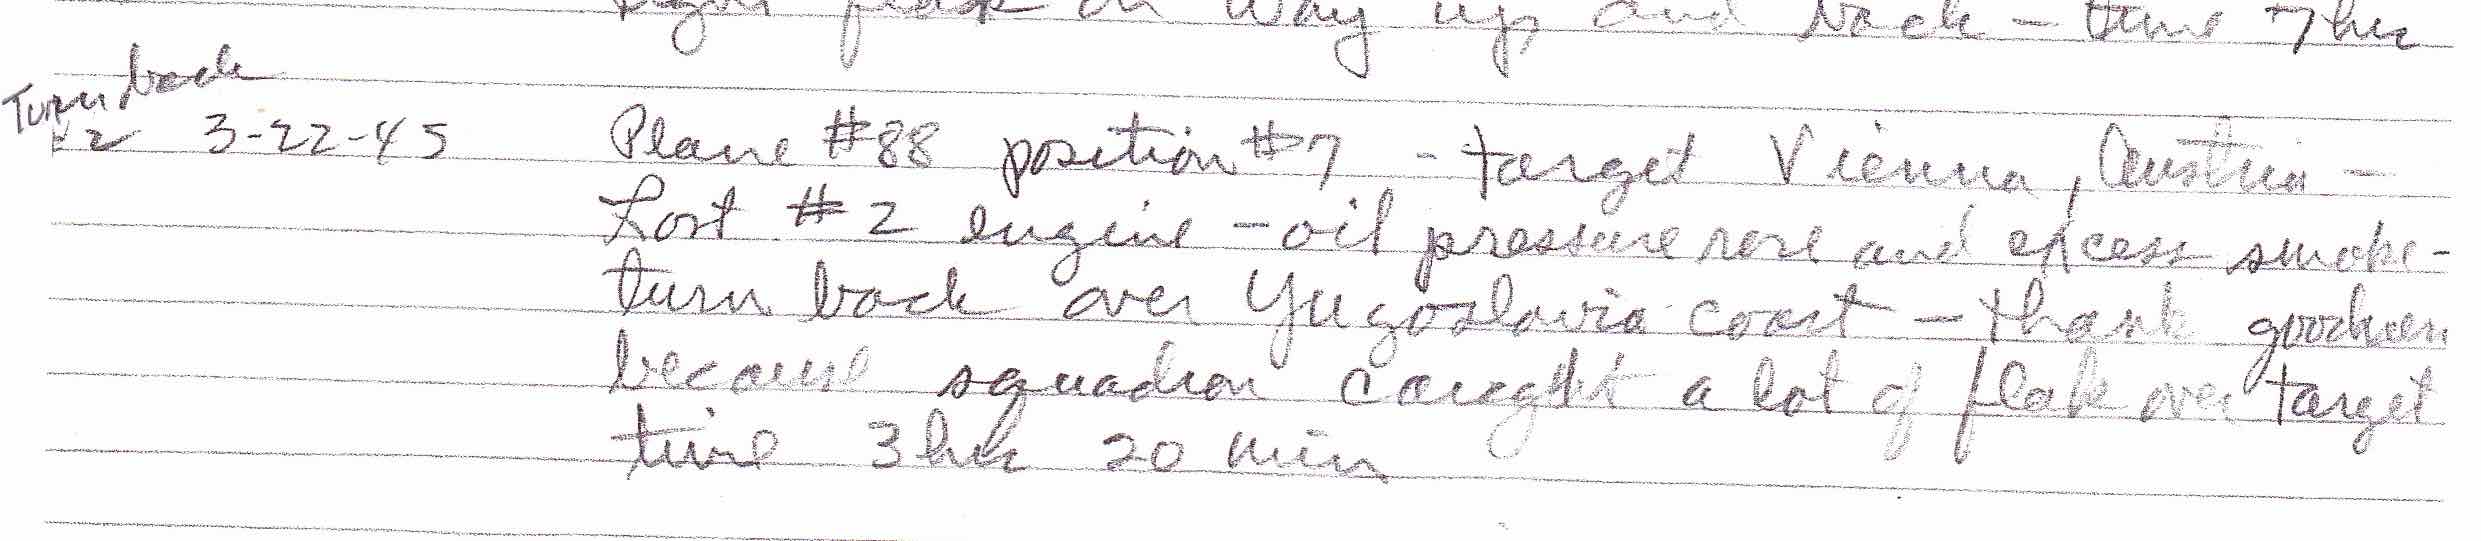 light flak on way up and back - time 7 hrs
Turn back
#2 3-22-45 Plane #88 position #7 - target Vienna, Austria -
Lost #2 engine - oil pressure rose and excess smoke -
turn back over Yugoslavia coast - thank goodness
because squadron caught a lot of flak over target
time 3 hrs 20 min